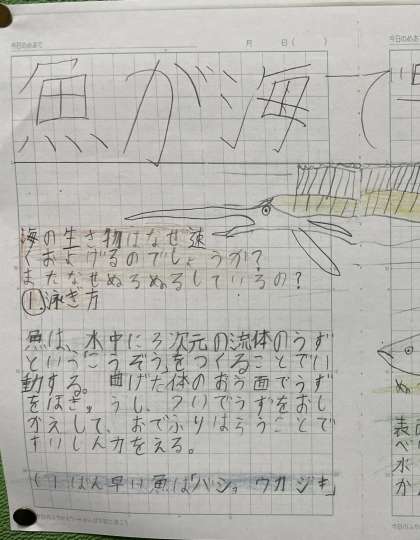 今日のめあて
月 日( )
今日のめあ
魚が海で
海の生き物はなぜ速
くおよげるのでしょうか?
またなぜぬろぬろしているの?
①泳ぎ方
魚は、水中に3次元の流体のうず
という「こうぞう」をつくることでい
動する。曲げた体のおう面でうず
をほぎ。うし、ついでうずをおし
かえして、おでふりはらうことで
すいしん力をえる。
(いちばん早い魚は「バショウカジキ」
ぬ
表
べ
水
か